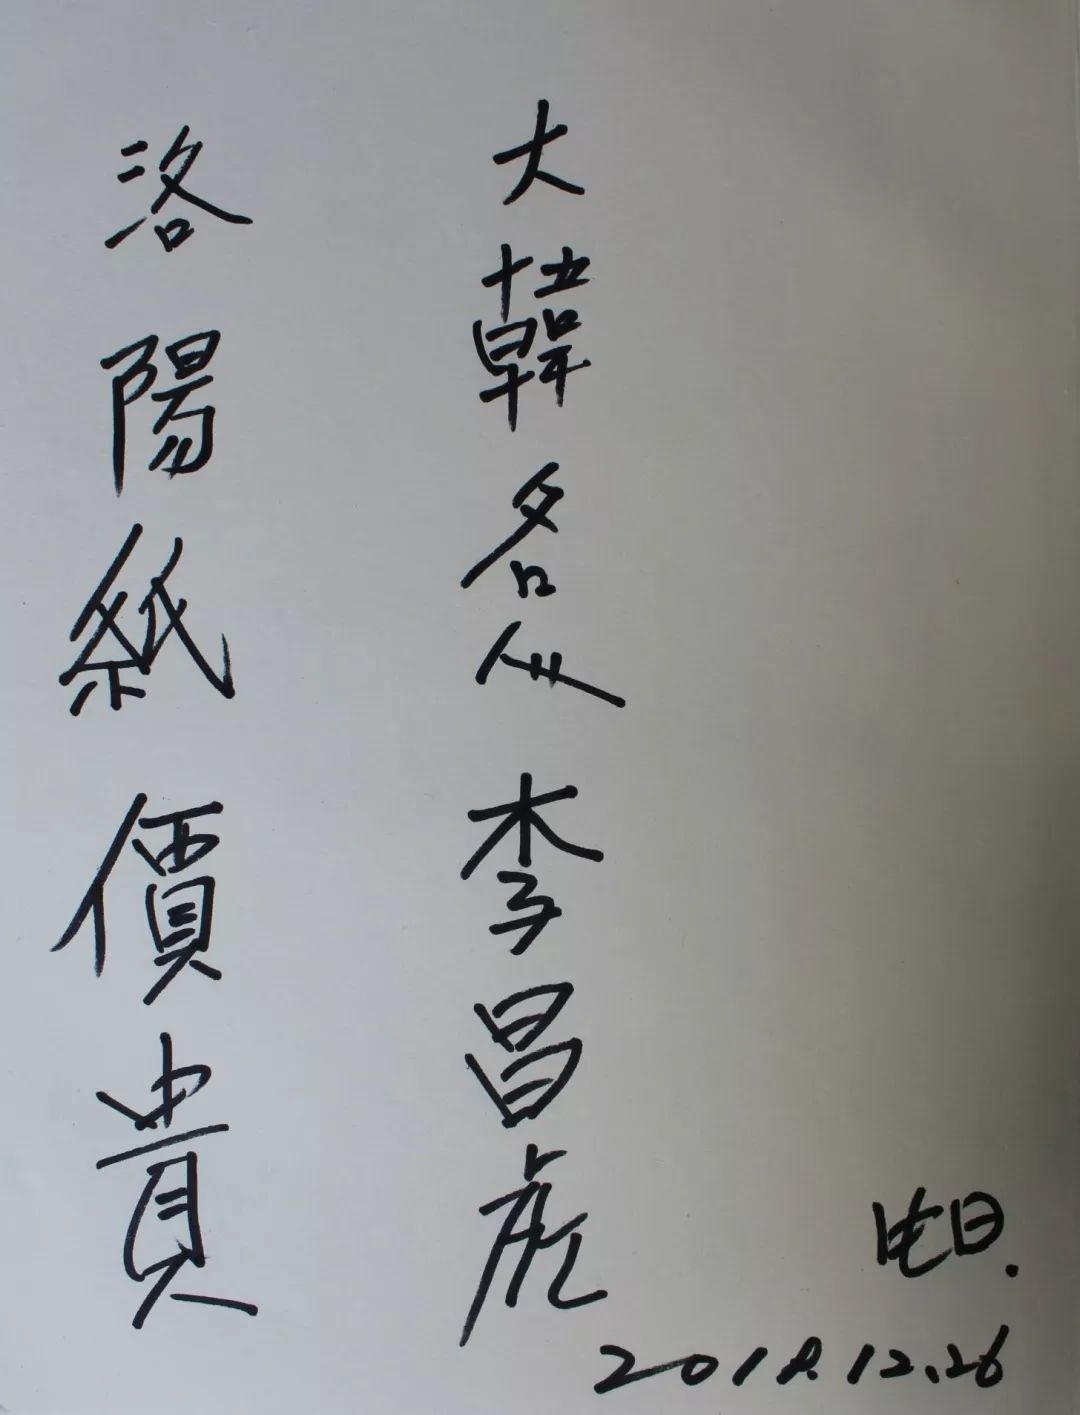 大韓名人李昌虎
洛陽紙價貴
2018.12.26